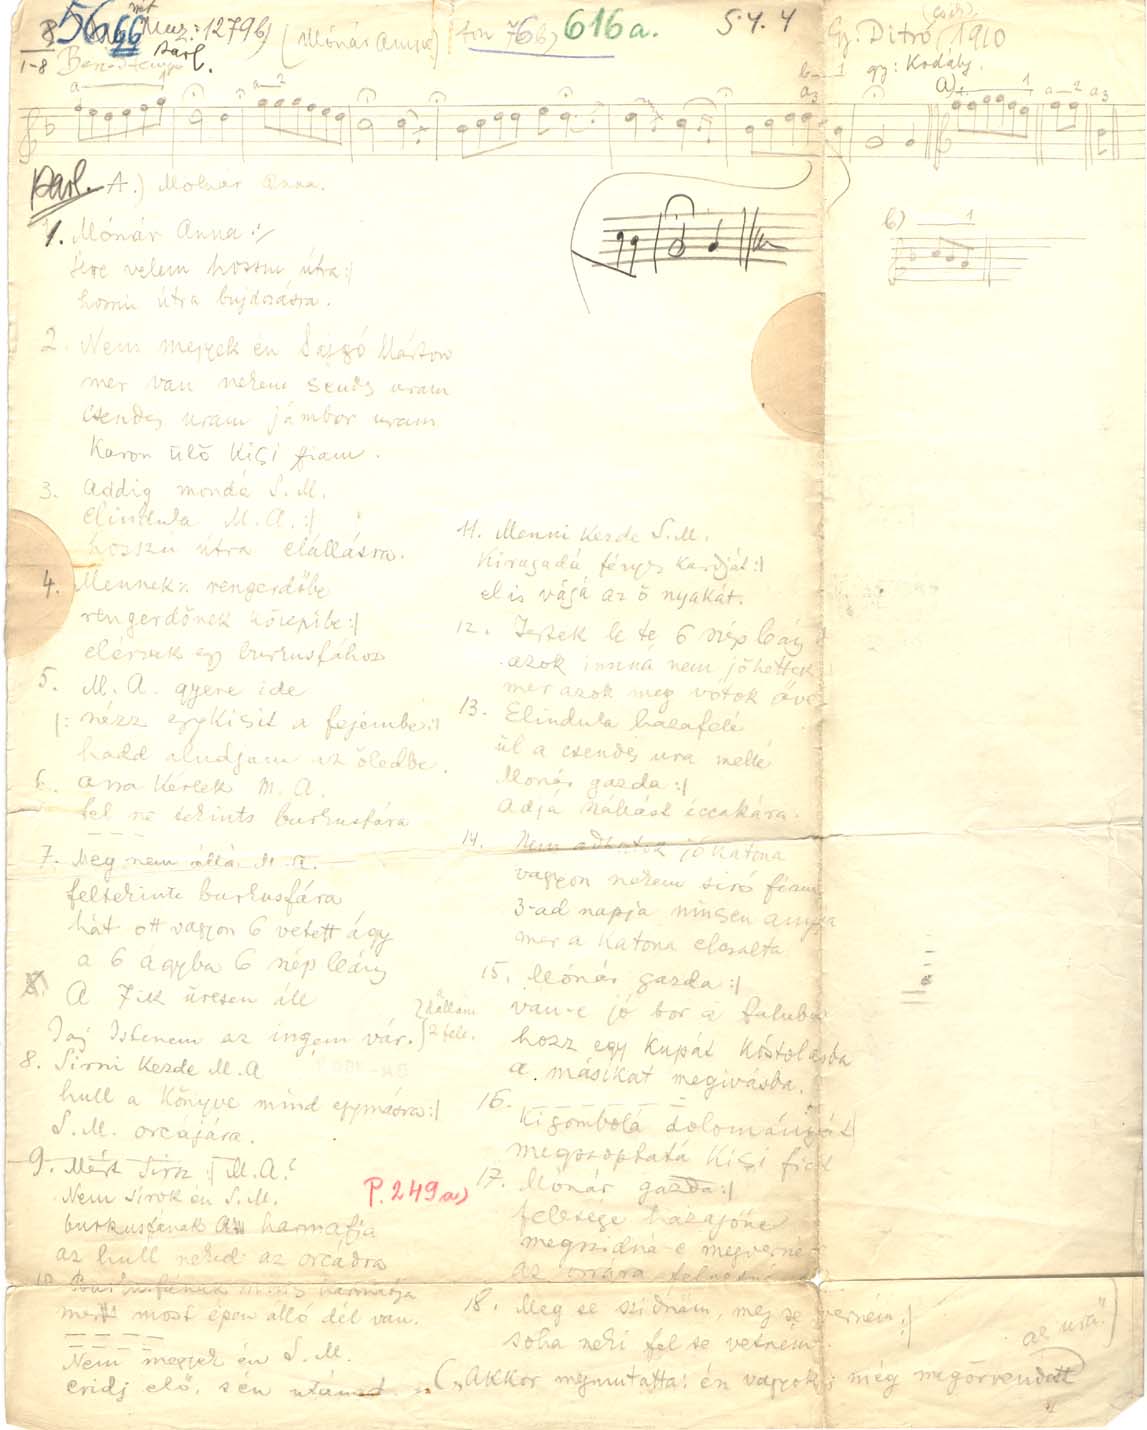 Muz: 1279b) (Mónár Anna) fon 76b) 616a. 5.4.4 Gy. Ditró (Csík) 1910
1-8 parl. gy: Kodály.
a) 1 a 2 a3
Parl. A.) Molnár Anna.
b) 1
1. Mónár Anna :/
Jere velem hosszu útra :|
hosszu útra bujdosásra.
2. Nem megyek én Sajgó Márton
mer van nekem csendes uram
csendes uram jámbor uram
Karon ülő Kisi fiam.
3. Addig mondá S. M.
elindula M. A. :|
hosszú útra elállásra.
4. Mennek rengerdőbe
rengerdőnek közepibe :|
elérnek egy burkusfához
5. M. A. gyere ide
|: nézz egykisit a fejembe :|
hadd aludjam az öledbe.
6. Arra kérlek M. A.
fel ne tekints burkusfára
7. Meg nem állá M. A.
feltekinte burkusfára
hát ott vagyon 6 vetett ágy
a 6 ágyba 6 szép lány
A 7ik üresen áll
Jaj Istenem az ingem vár.
8. Sirni kezde M. A
hull a könyve mind egymásra :|
S. M. orcájára.
9. Mért sirsz :| M. A.?
Nem sirok én S. M.
burkusfának harmatja
az hull neked az orcádra
10. Burkusfának nincs harmatja
mert most épen álló dél van.
Nem megyek én S. M.
eridj elő, s én utánad
P. 249 a)
11. Menni kezde S. M.
Kiragadá fényes kardját :|
el is vágá az ő nyakát.
12. Jertek le te 6 szép lány
azok immá nem jöhettek
mer azok meg vótok ölve
13. Elindula hazafelé
ül a csendes ura mellé
Mónár gazda :|
Adjá szállást éccakára.
14. Nem adhatok jó katona
vagyon nekem siró fiam
3-ad napja nincsen anyja
mer a katona elcsalta
15. Mónár gazda :|
van-e jó bor a faluba
hozz egy kupát kóstolásba
a másikat megivásba.
16.
Kigombolá dolományát
megszoptatá kisi fiát
17. Mónár gazda :|
felesége hazajőne
megszidná-e megverné-e
18. Meg se szidnám, meg se verném :|
soha neki fel se vetném
("Akkor megmutatta: én vagyok; még megörvendett az ura")